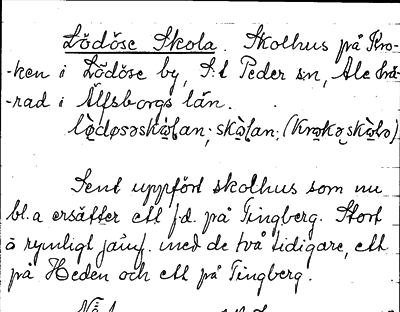 Lödöse Skola. Skolhus på Kro-
-ken i Lödöse by, S:t Peder sn, Ale hä-
-rad i Älfsborgs län.
lø̀døsəskò̤lan; skò̤lan; (krø̀kəskò̤lə)
Sent uppfört skolhus som nu
bl.a ersätter ett f.d. på Tingberg. Stort
o rymligt jämf. med de två tidigare, ett
på Heden och ett på Tingberg.